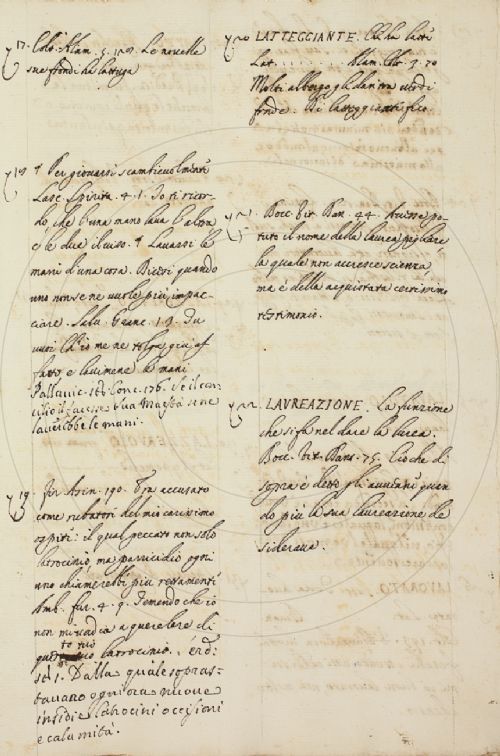 17. Colt. Alam. 5. 127. Le novelle
sue frondi ha lattuga
18 ¶ Per giovarsi scambievolmente
Lasc. Spirit. 4. 1. Io ti ricor-
do, che l'una mano lava l'altra
e le due il viso. ¶ Lavarsi le
mani d'una cosa. Dicesi quando
uno non se ne vuole più impac-
ciare. Salv. Granc. 1. 3. Tu
vuoi ch'io me ne tolga giù af
fatto e lavimene le mani
Pallavic. ist. Conc. 176. Se il con-
cilio il facesse sua Maestà se ne
laverebbe le mani.
19. fir. Asin. 190. Era accusato
come rubatori del mio carissimo
ospite: il qual peccato non solo
latrocinio, ma parricidio ogni
uno chiamerebbe più rettamente
Amb. fur. 4. 9. Temendo che io
non mi vadia a querelare di
to tuo
latrocinio.
Dalla quale sopras-
tavano ogni ora nuove
insidie latrocini occisioni
e calamità.
20 LATTEGGIANTE. Che ha latte
Lat. . . . . . . . Alam. Colt. 3. 70
Molti albergo gli dan tra verdi
fronde. Di latteggiante fico.
21. Bocc. vit. Dan. 44. Avesse po-
tuto il nome della laurea pigliare
la quale non accresce scienza,
ma è della acquistata certissimo
testimonio.
22. LAUREAZIONE. La funzione
che si fa nel dare la laurea.
Bocc. vit. Dant. 75. Ciò che di-
sopra è detto gli avvenne quan
do più la sua laureazione de
siderava.